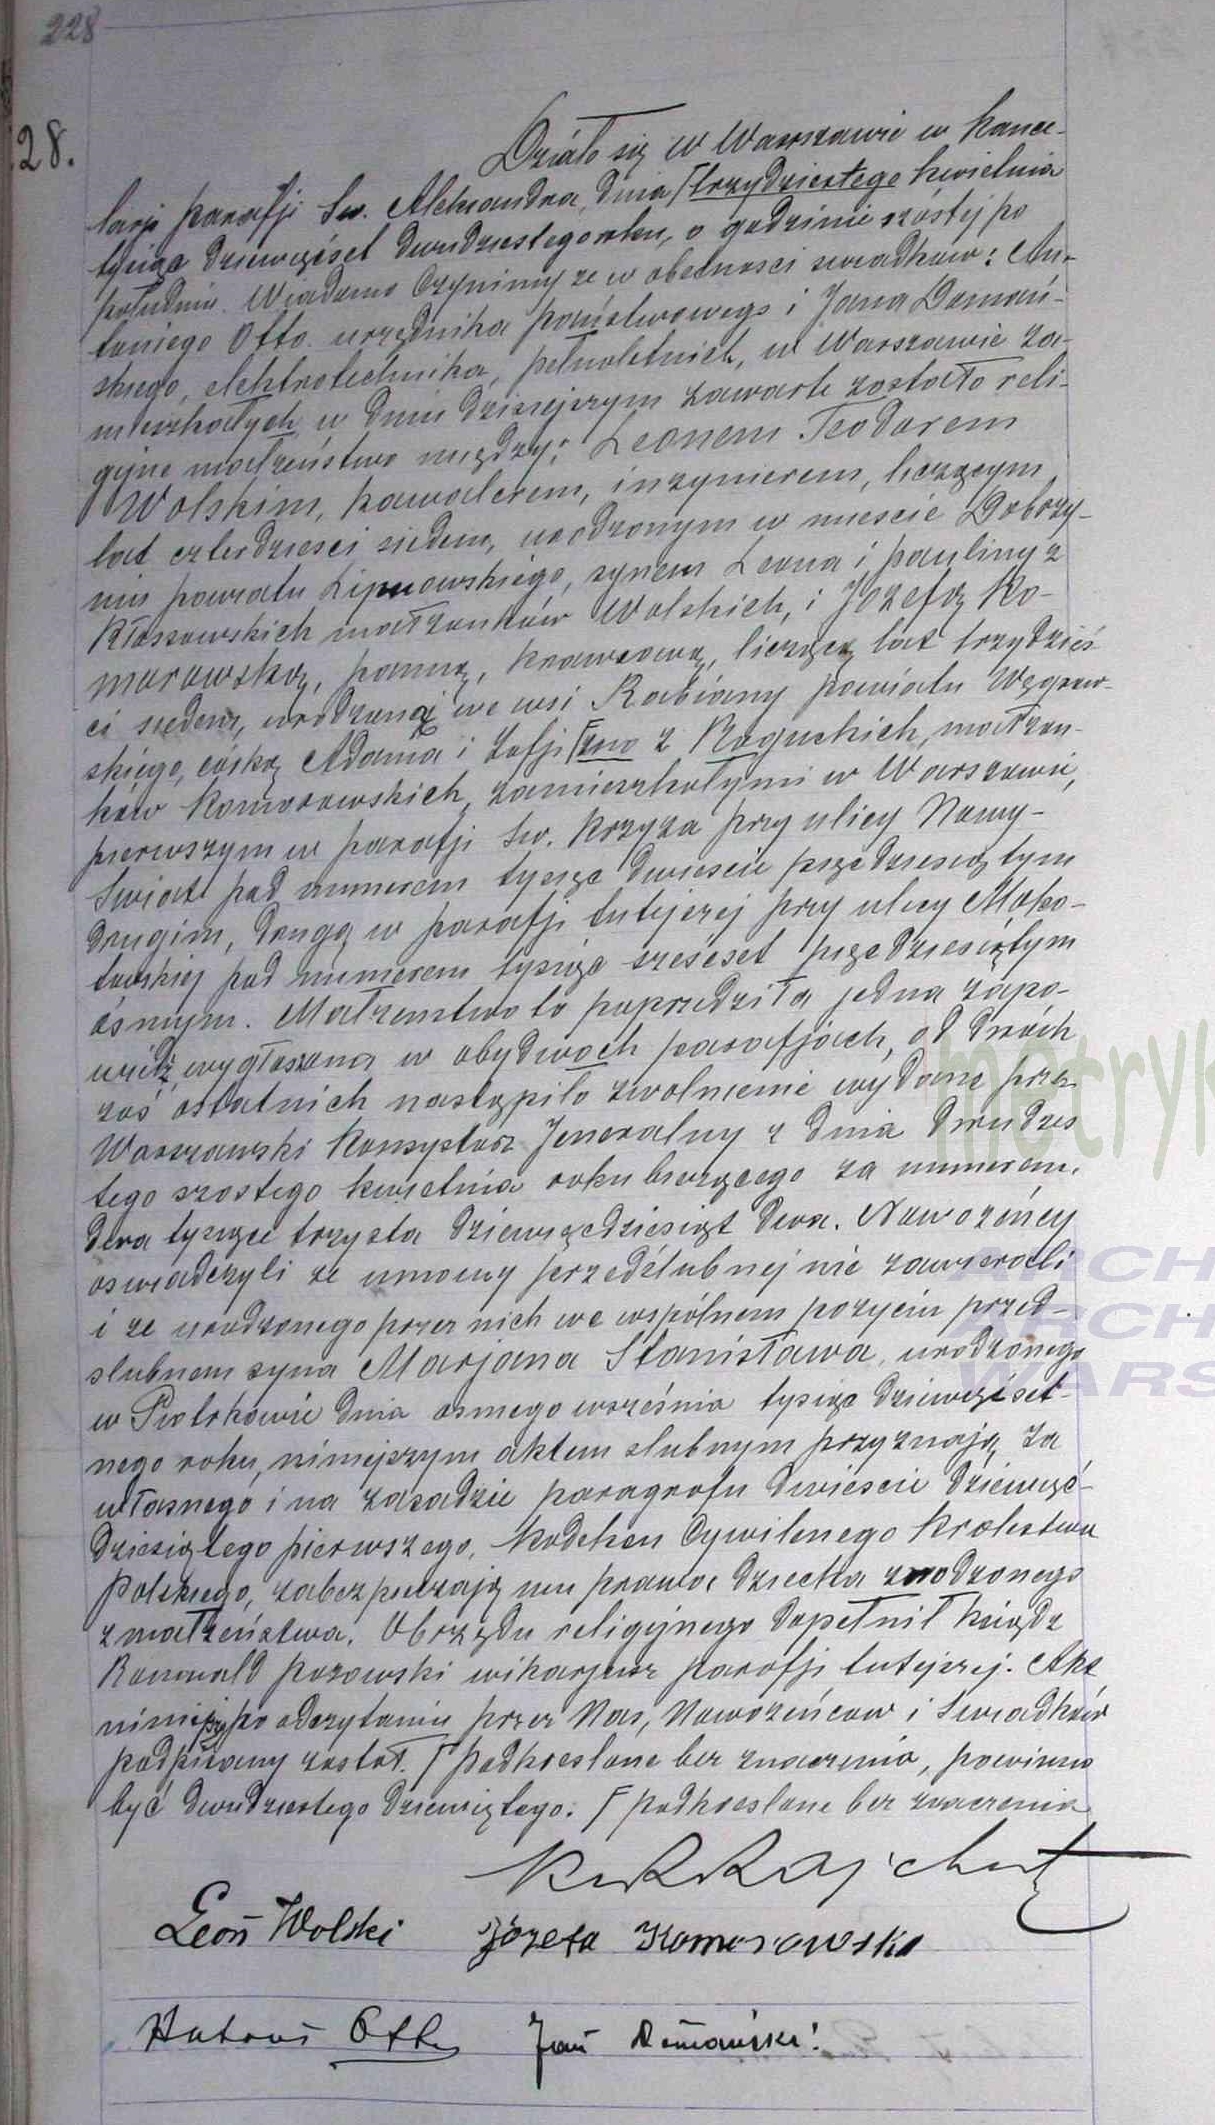 228
28.
Działo się w Warszawie w kance-
larji parafji Św. Aleksandra, dnia trzydziestego kwietnia
tysiąc dziewięćset dwudziestego roku, o godzinie szóstej po
południu. Wiadomo czynimy ze w obecności swiadków: An-
toniego Otto. urzędnika państwowego i Jana Domań-
skiego, elektrotechnika, pełnoletnich, w Warszawie za-
mieszkałych w dniu dzisiejszym zawarte zostało reli-
gijne małżeństwo między: Leonem Teodorem
Wolskim, kawalerem, inzynierem, liczącym
lat czterdzieści siedem, urodzonym w mieście Dobrzy-
niu powiatu Lipnowskiego, synem Leona i Pauliny z
Kłossowskich małżonków Wolskich, i Józefą Ko-
morowską, panną, krawcową, liczącą lat trzydzieś-
ci siedem, urodzoną we wsi Rabiany powiatu Węgrow-
skiego, córką Adama i Zofji z Roguckich, małżon-
ków Komorowskich, zamieszkałymi w Warszawie,
pierwszym w parafji Św. Krzyża przy ulicy Nowy-
Świat pod numerem tysiąc dwieście pięćdziesiątym
drugim, drugą w parafji tutejszej przy ulicy Moko-
towskiej pod numerem tysiąc sześćset pięćdziesiątym
ósmym. Małżeństwo to poprzedziła jedna zapo-
wiedź wygłoszona w obydwoch parafjach, od dwóch
zaś ostatnich nastąpiło zwolnienie wydane prze
Warszawski Konsystorz Jeneralny z dnia dwudzies
tego szostego kwietnia roku bieżącego za numerem.
dwa tysiące trzysta dziewięćdziesiąt dwa. Nowożeńcy
oswiadczyli ze umowy przedślubnej nie zawierali
i ze urodzonego przez nich we wspólnem pożyciu przed-
slubnem syna Marjana Stanisława, urodzonego
w Piotrkowie dnia osmego września tysiąc dziewięćset-
nego roku, niniejszym aktem slubnym przyznają za
własnego i na zasadzie paragrofu dwieście dziewięć-
dziesiątego pierwszego, Kodeksu Cywilnego Królestwa
Polskiego, zabezpieczają mu prawa dziecka zrodzonego
z małżeństwa. Obrzędu religijnego dopełnił ksiądz
Romuald wikarjusz parafji tutejszej. Akt
niniejszy po odczytaniu przez Nas, Nowożeńcow i Świadków
podpisany został. podkreslone bez znaczenia, powinno
być dwudziestego dziewiątego. podkreslone bez znaczenia
Leon Wolski Józefa Komorowska
Antoni Otto Jan Domański
metryk
ARCH
ARCH
WARS